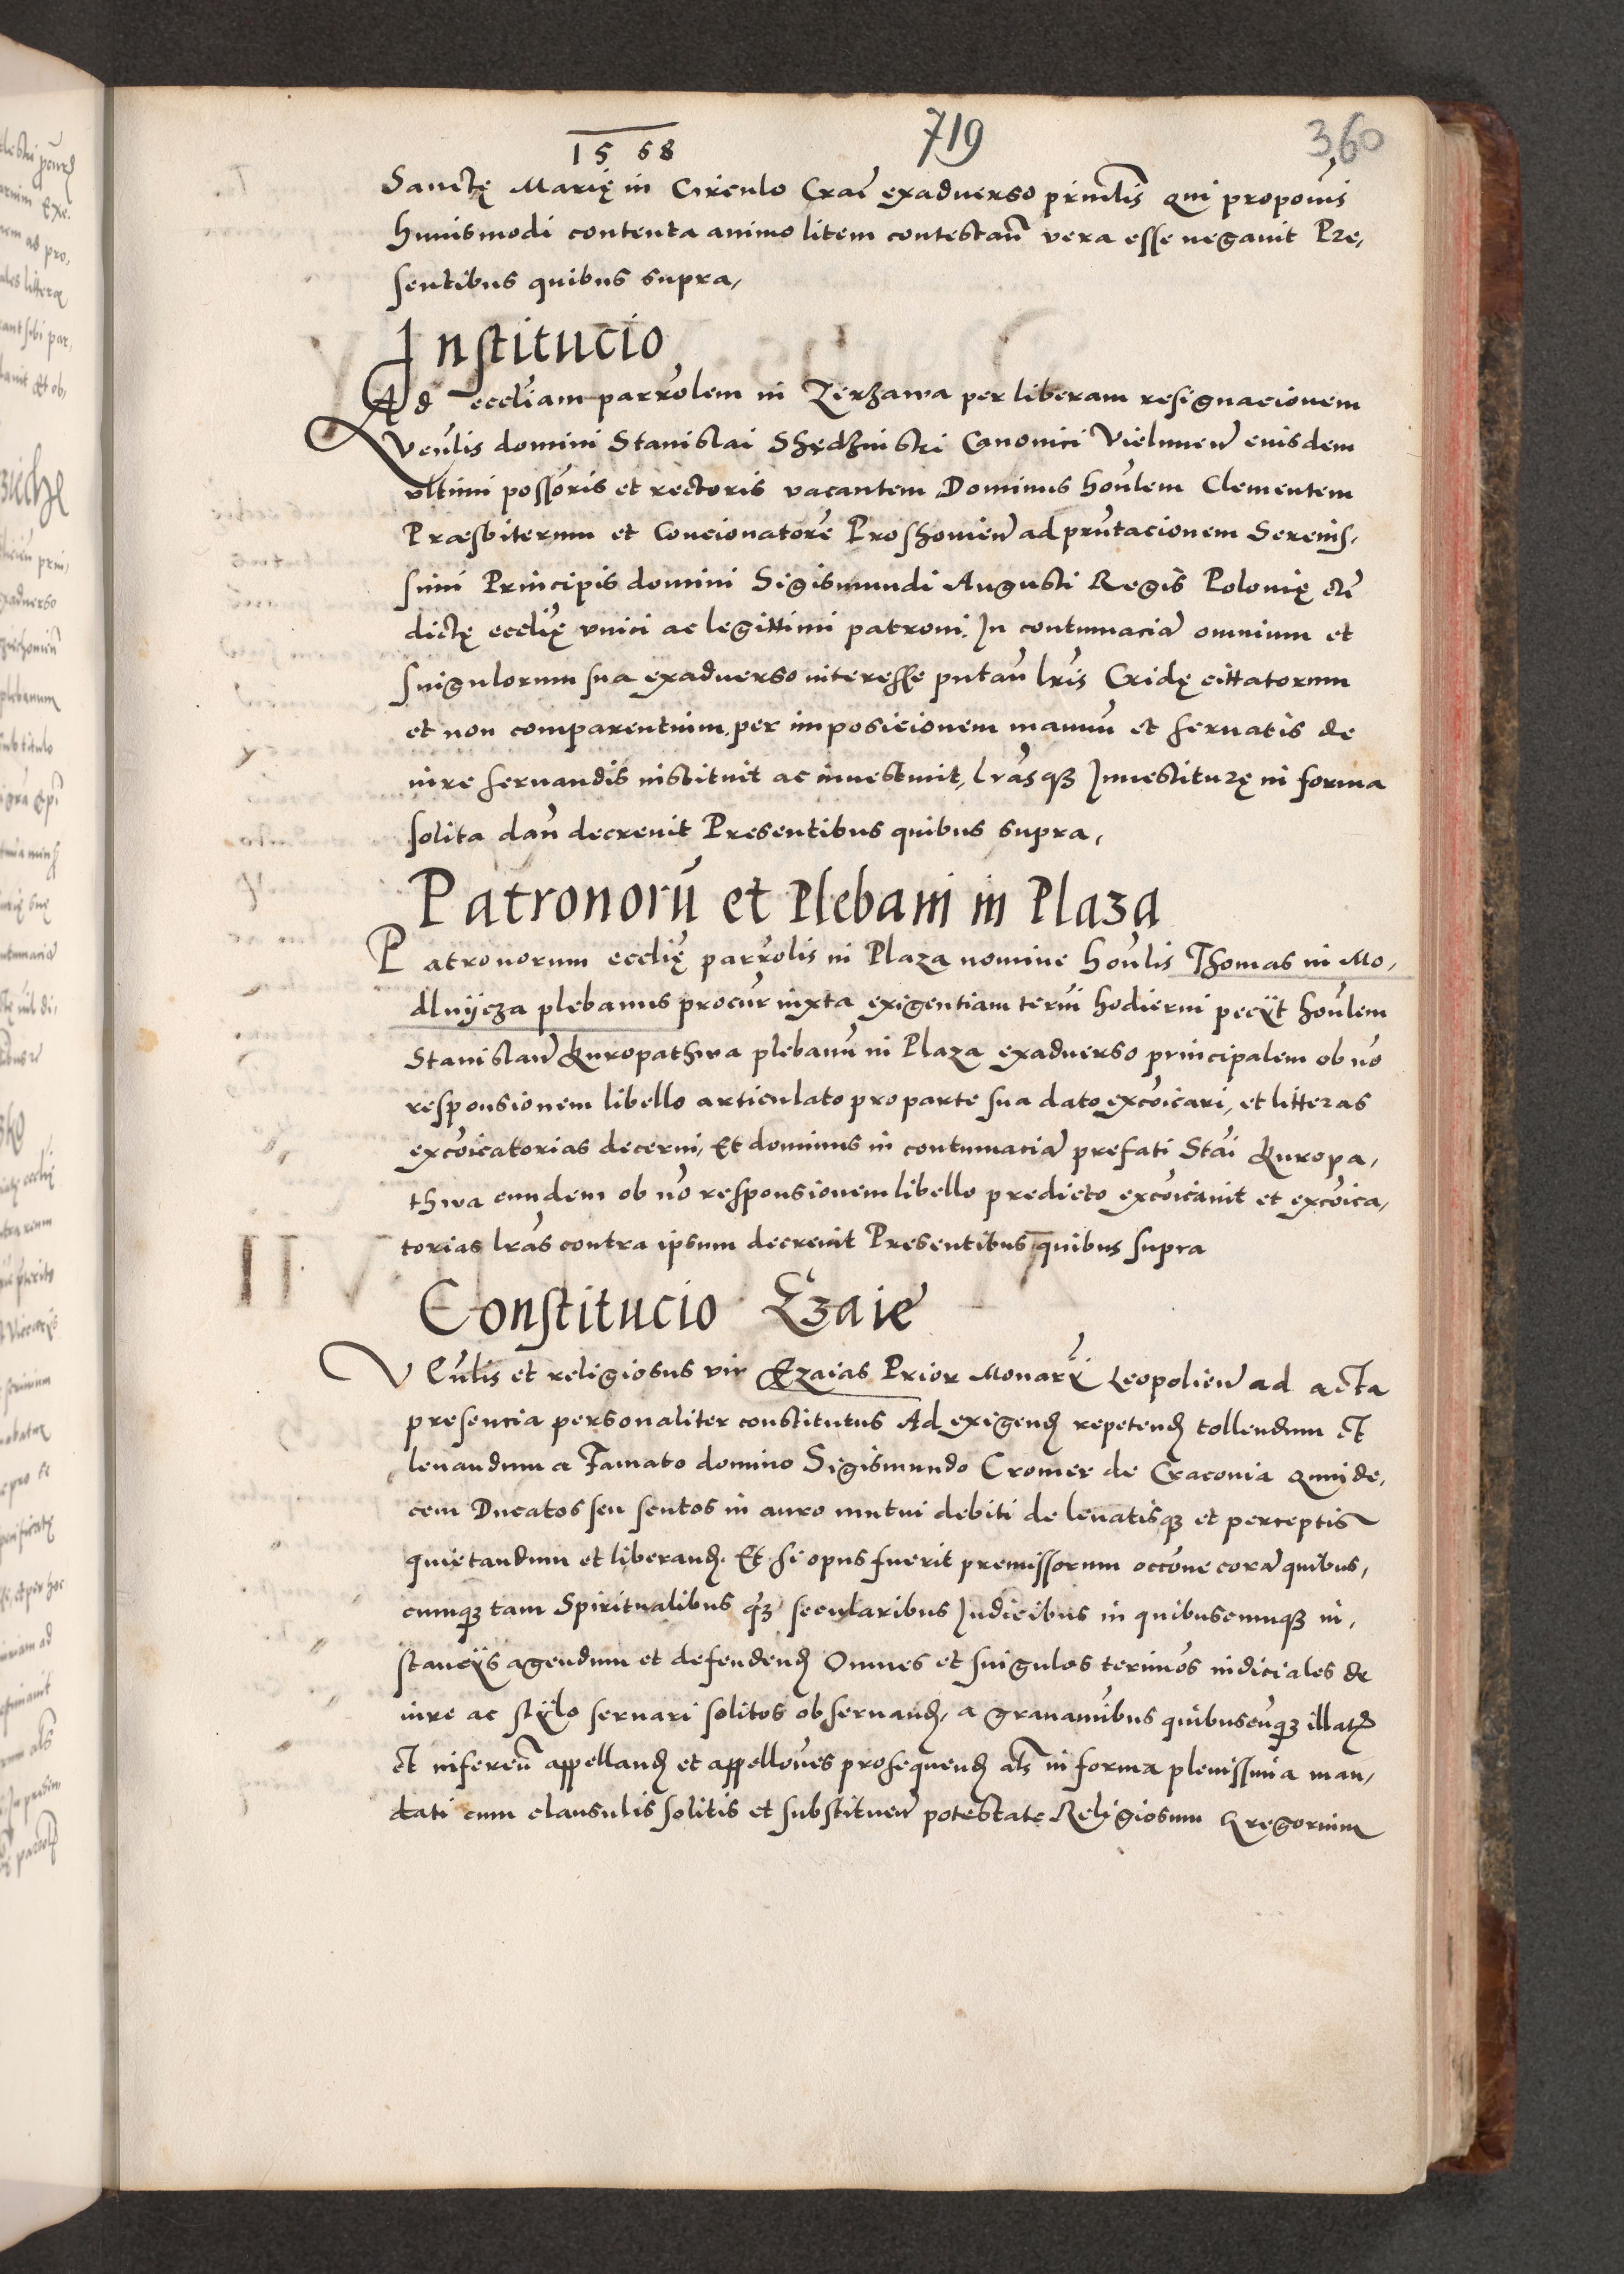 1568
719
360
Sanctę Marię in Circulo Craĉ exaduerso prinĉlis qui proponis
huiusmodi contenta animo litem contestan̄ vera esse negauit Pre,
sentibus quibus supra,
Institucio
Ad eccliam parrolem in Zerzawa per liberam resignacionem
Venlis domini Stanislai Shędzinski Canonici Vielunen̄ euisdem
vltimi possoris et rectoris vacantem Dominus honlem Clementem
Præsbiterum et Concionatorē Proshouien̄ ad prntacionem Serenis-
simi Principis domini Sigismundi Augusti Regis Polonię etc̄
dictę ecclię vnici ac legittimi patroni. In contumaciā omnium et
singulorum sua exaduerso interesse putan̄ lris Cridę cittatorum
et non comparentium, per imposicionem manuū et seruatis de
iure seruandis instituit ac inuestiuit, lrasqȝ Inuestiturę in forma
solita dan̄ decreuit Presentibus quibus supra,
Patronorū et Plebani in Plaza
Patronorum ecclię parrolis in Plaza nomine honlis Thomas in Mo,
dlnÿcza plebanus procur̄ iuxta exigentiam termi hodierni pecÿt honlem
Stanislaū Kuropathwa plebanū in Plaza exaduerso principalem ob nō
responsionem libello articulato pro parte sua dato excōicari, et litteras
excōicatorias decerni, Et dominus in contumaciā prefati Stai Kuropa,
thwa eundem ob nō responsionem libello predicto excōicauit et excōica,
torias lras contra ipsum decreuit Presentibus quibus supra
Constitucio Ezaie
Vēnlis et religiosus vir Ezaias Prior Monarī Leopolien̄ ad acta
presencia personaliter constitutus Ad exigenḍ repetenḍ tollendum et
leuandum a Famato domino Sigismundo Cromer de Cracouia quinde,
cem Ducatos seu scutos in auro mutui debiti de leuatisqȝ et perceptis
quietandum et liberanḍ. Et si opus fuerit premissorum occōne corā quibus,
cumqȝ tam Spiritualibus q̄ȝ secularibus Iudicibus in quibuscumqȝ in,
stancÿs agendum et defendenḍ Omnes et singulos terminos iudiciales de
iure ac stÿlo seruari solitos obseruanḍ, a grauaminibus quibuscūqȝ illatis
et inferen̄ appellanḍ et appellones prosequenḍ als in forma plenissima man,
dati cum clausulis solitis et substituen̄ potestate Religiosum Gregorium